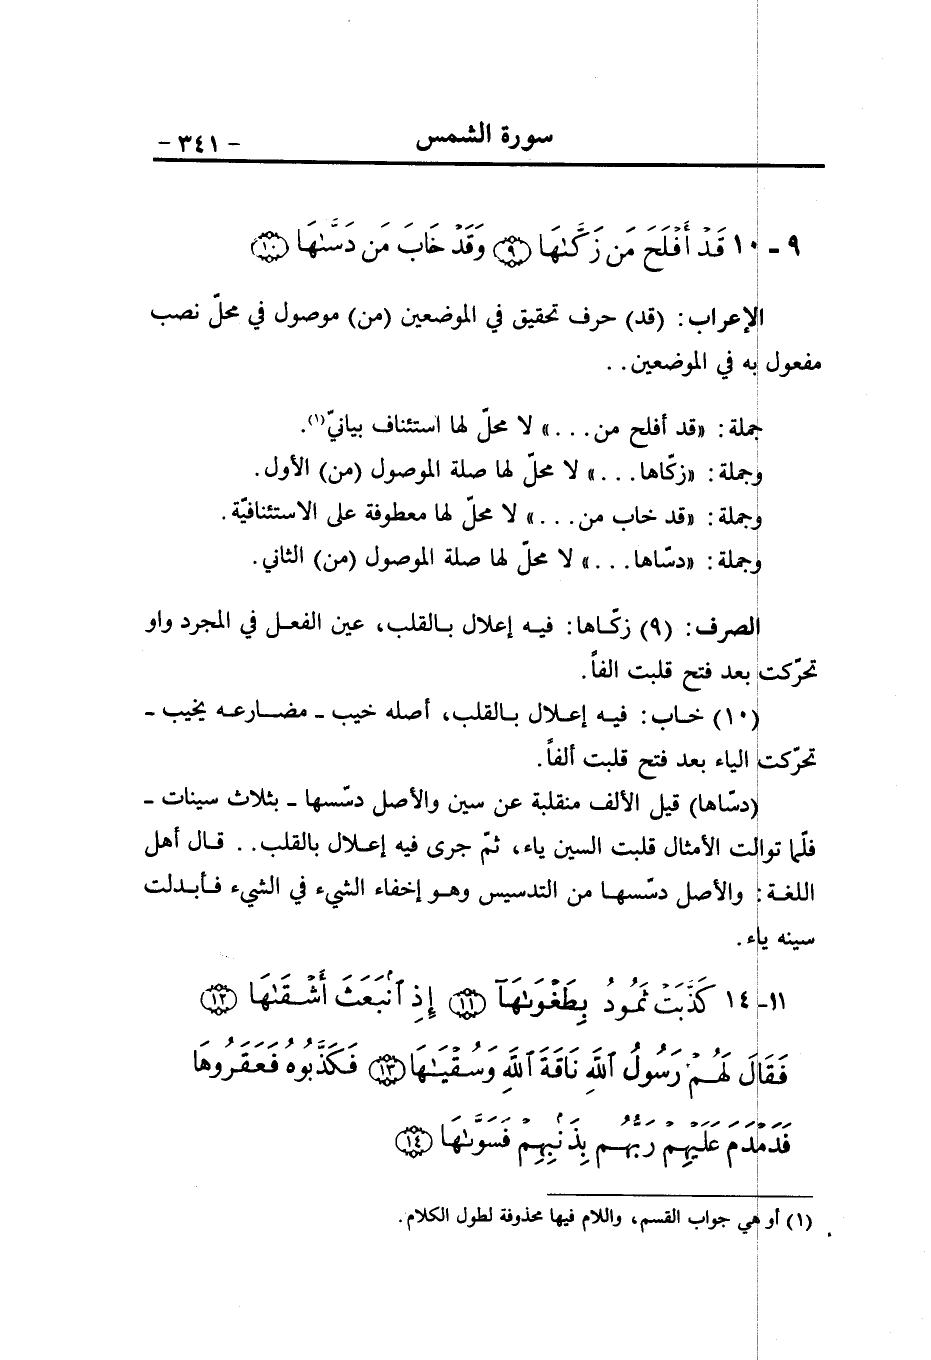 سورة الشمس
- ٣٤١ -
٩ - ١٠ قَدْ أَفْلَحَ مَن زَكَّىٰهَا ﴿٩﴾ وَقَدْ خَابَ مَن دَسَّىٰهَا ﴿١٠﴾
الإعراب: (قد) حرف تحقيق في الموضعين (من) موصول في محلّ نصب
مفعول به في الموضعين..
جملة: «قد أفلح من...» لا محلّ لها استئناف بيانيّ(١).
وجملة: «زكّاها...» لا محلّ لها صلة الموصول (من) الأول.
وجملة: «قد خاب من...» لا محلّ لها معطوفة على الاستئنافيّة.
وجملة: «دسّاها...» لا محلّ لها صلة الموصول (من) الثاني.
الصرف: (٩) زكّاها: فيه إعلال بالقلب، عين الفعل في المجرد واو
تحرّكت بعد فتح قلبت الفاً.
(١٠) خاب: فيه إعلال بالقلب، أصله خيب - مضارعه يخيب -
تحرّكت الياء بعد فتح قلبت ألفاً.
(دسّاها) قيل الألف منقلبة عن سين والأصل دسّسها - بثلاث سينات -
فلّما توالت الأمثال قلبت السين ياء، ثمّ جرى فيه إعلال بالقلب.. قال أهل
اللغة: والأصل دسّسها من التدسيس وهو إخفاء الشيء في الشيء فأبدلت
سينه ياء.
١١- ١٤ كَذَّبَتْ ثَمُودُ بِطَغْوَىٰهَآ ﴿١١﴾ إِذِ ٱنۢبَعَثَ أَشْقَىٰهَا ﴿١٢﴾
فَقَالَ لَهُمْ رَسُولُ ٱللَّهِ نَاقَةَ ٱللَّهِ وَسُقْيَٰهَا ﴿١٣﴾ فَكَذَّبُوهُ فَعَقَرُوهَا
فَدَمْدَمَ عَلَيْهِمْ رَبُّهُم بِذَنۢبِهِمْ فَسَوَّىٰهَا ﴿١٤﴾
(١) أو هي جواب القسم، واللام فيها محذوفة لطول الكلام.